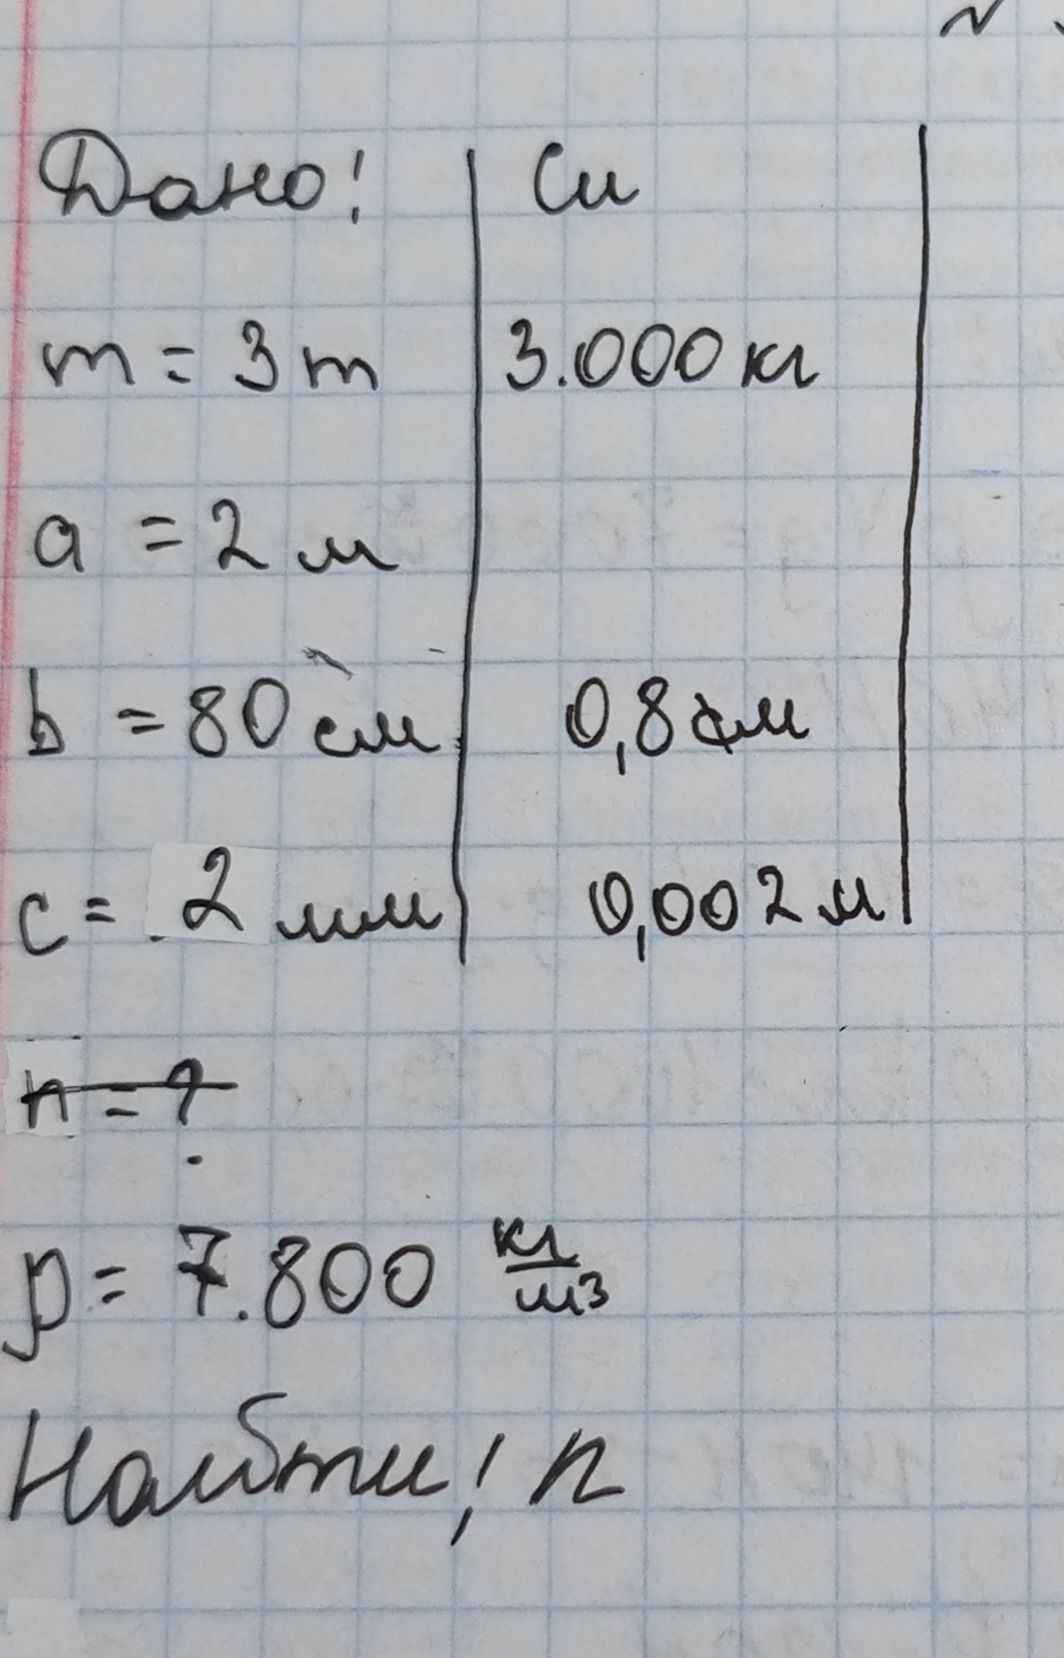 Дано: Си
m = 3 т 3.000 кг
a = 2 м
b = 80 см 0,8 м
c = 2 мм 0,002 м
n = ?
ρ = 7.800 кг/м3
Найти: n